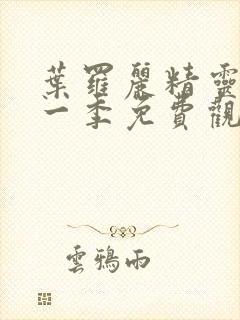 葉羅麗精靈
一季免費觀
雲鴉雨